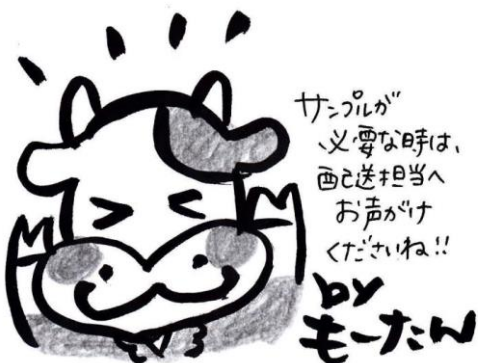 サンプルが
必要な時は、
配送担当へ
お声がけ
くださいね!!
by
もーたん